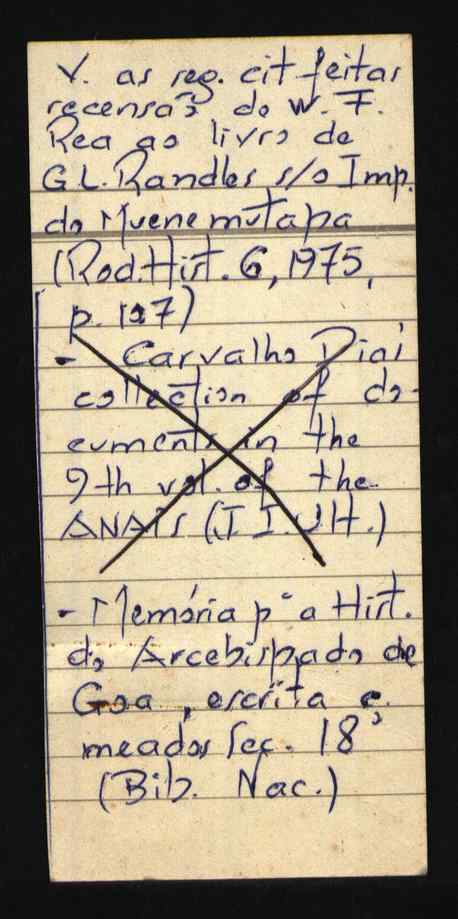 V. as seg. cit feitas
recensão do W. F.
Rea ao livro de
G L. Randles s/o Imp.
do Muenemutapa
(Rod. Hist. 6, 1975,
p. 127)
- Carvalho Dias
collection of do-
cuments in the
9th vol. of the
ANAIS (J I. U H.)
- Memória pª a Hist.
do Arcebispado de
Goa, escrita e.
meados Sec. 18º
(Bib. Nac.)